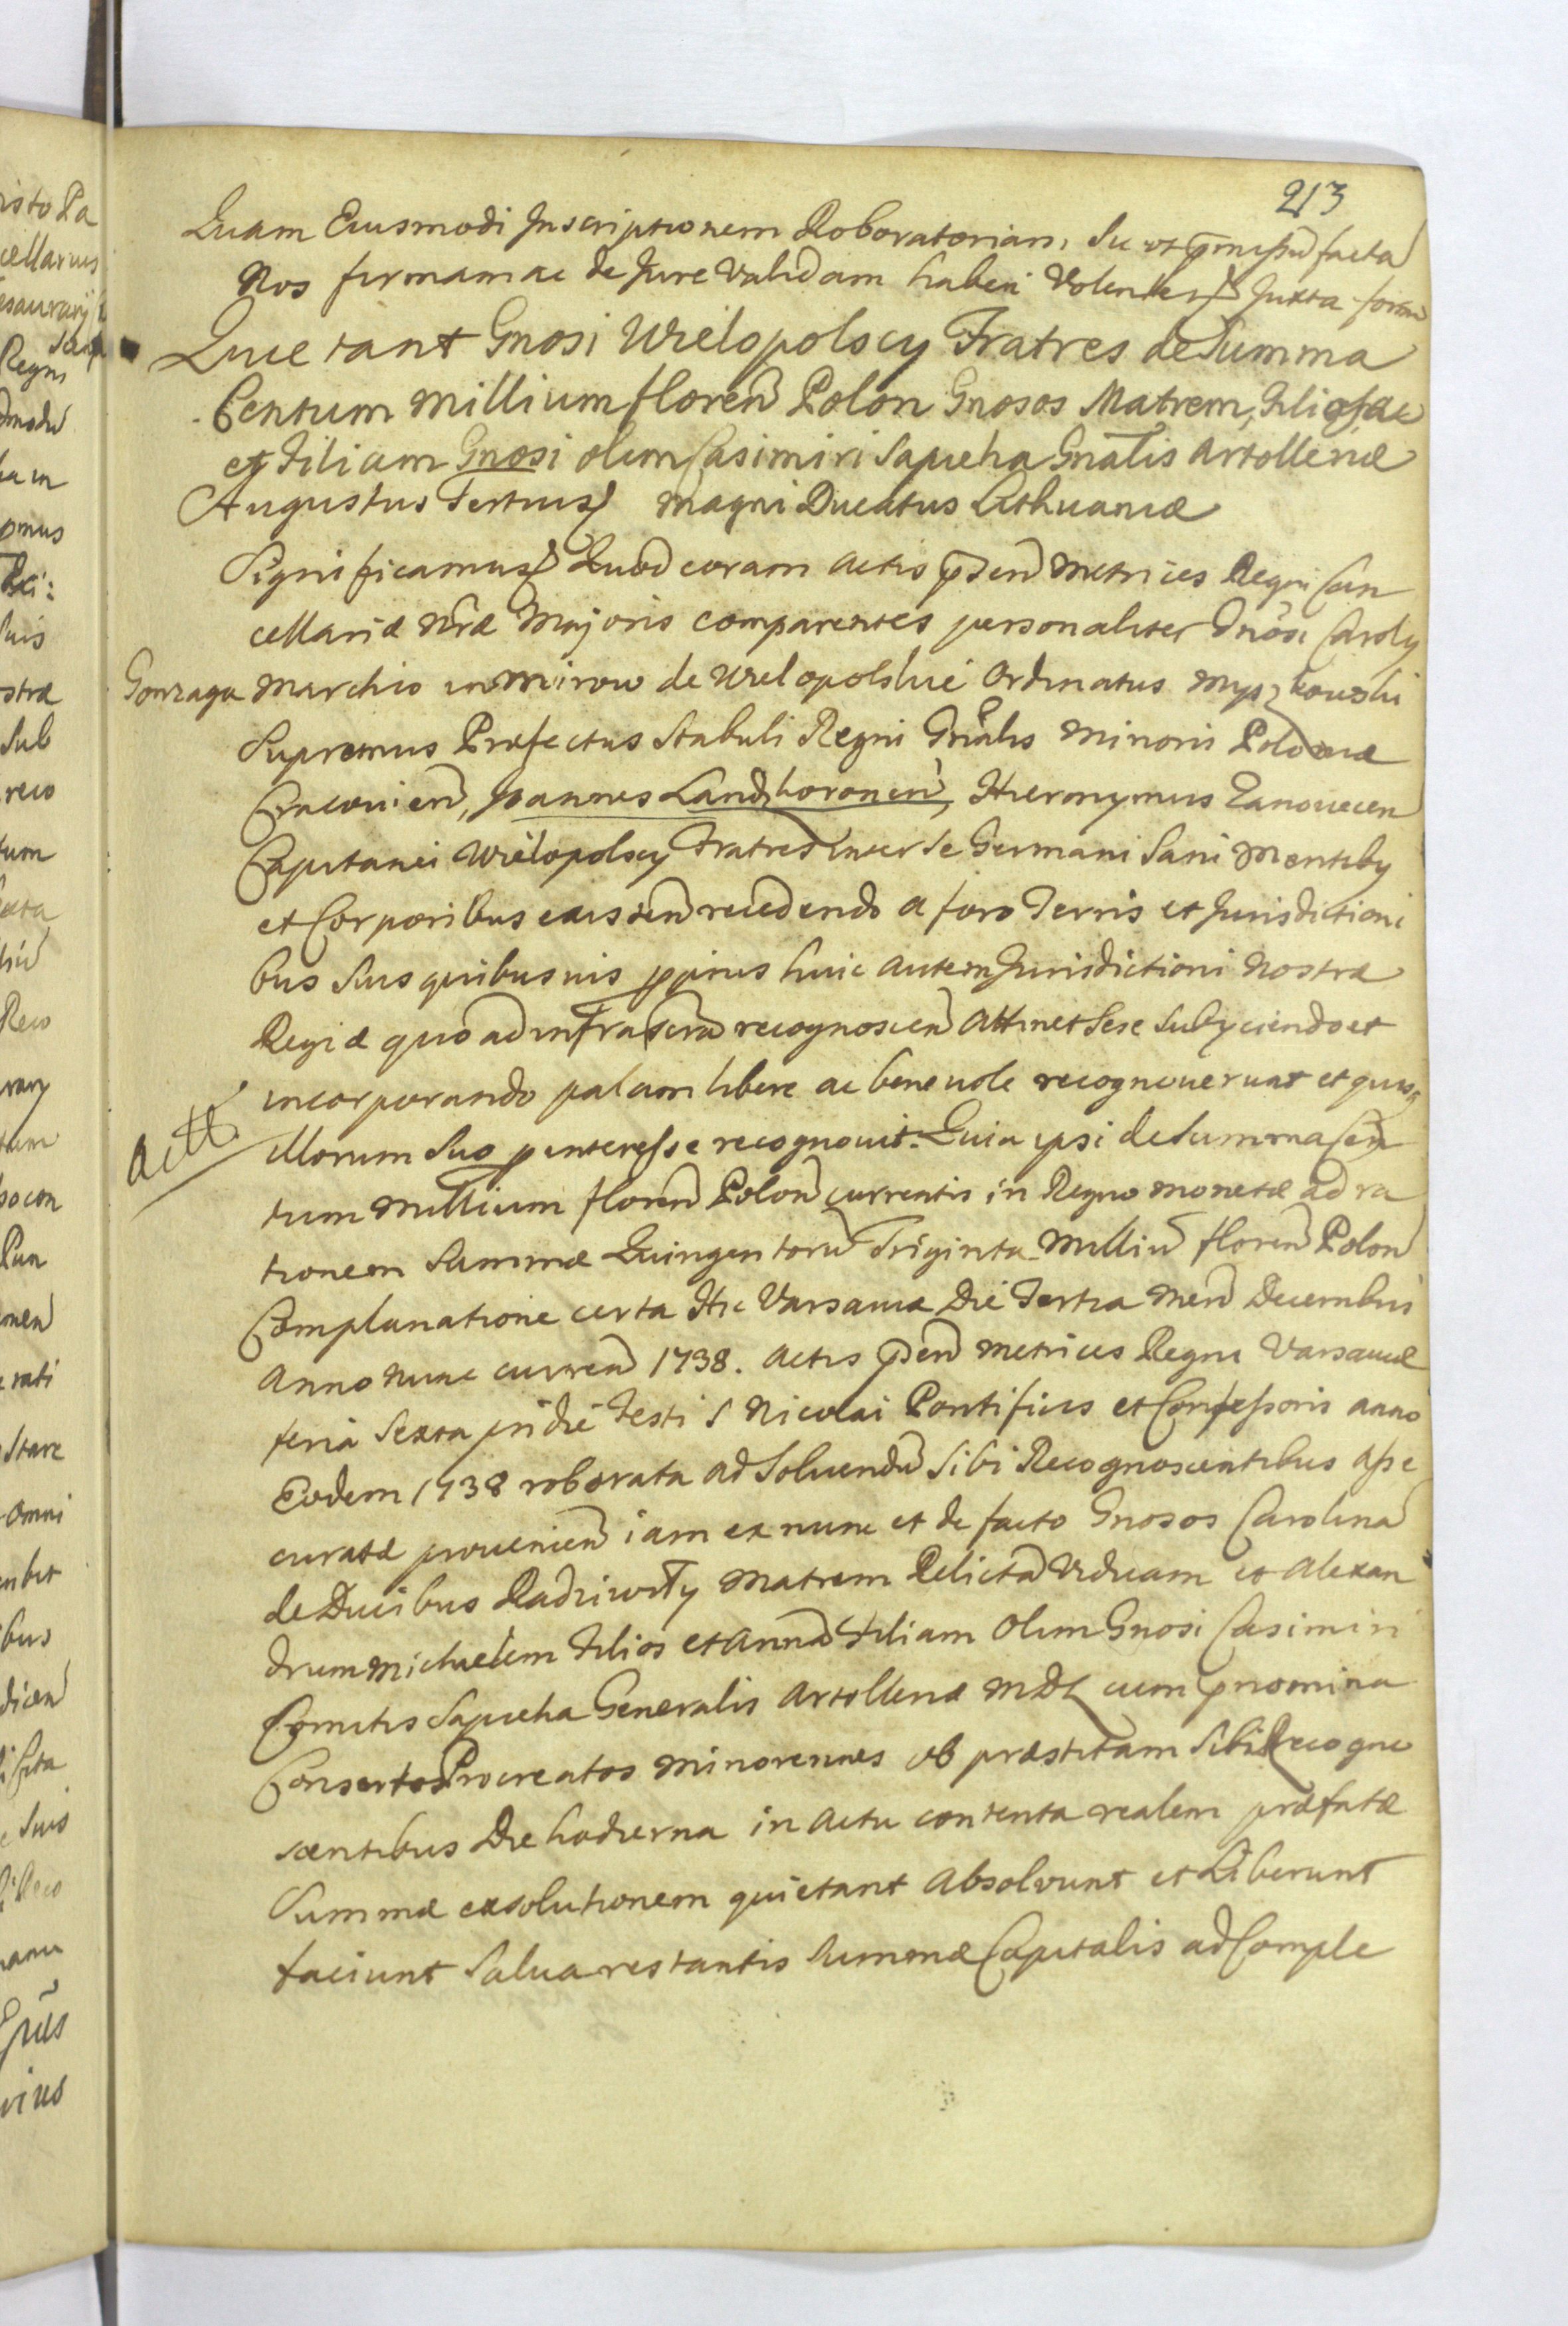 213
Quam Eiusmodi Inscriptionem Roboratoriam, Sic ut facta
Nos firmam ac de Jure Validam haberi Volentes Juxta form
Quietant Gnosi Wielopolscy Fratres de Summa
Centum Millium floren Polon Gnosos Matrem, Filios ac
et Filiam Gnosi olim Casimiri Sapieha Gnalis Artolleriæ
Augustus Tertius Magni Ducatus Lithuaniæ
Significamus Quod coram Actis pden Metrices Regni Can
cellariæ Nræ Majoris comparentes personaliter Gnosi Caroly
Gonzaga Marchio in Mirow de Wielopolskie Ordinatus Myszkowski
Supremus Præfectus Stabuli Regni Gnalis Minoris Poloniæ
Cracovien, Joannes Landshoronen, Hieronymus Zanovecen
Capitanei Wielopolscy Fratres inter se Germani Sani Mentiby
et Corporibus existen recedendo a foro Terris et Jurisdictioni
bus Suis quibusuis ppriis huic autem Jurisdictioni Nostræ
Regiæ quo ad infrascra recognoscen Attinet Sese Subyciendo et
incorporando palam libere ac beneuole recognouerunt et quisq
Actt.
illorum Suo p interesse recognouit. Quia ipsi de Summa Cen
tum Millium floren Polon currentis in Regno monetæ ad ra
tionem Summæ Quingentoru Triginta Milliu floren Polon
Complanatione certa Hic Varsaviæ Die Tertia Men Decembris
Anno nunc curren 1738. Actis pden Metrices Regni Varsaviæ
feria Sexta pridie Festi S Nicolai Pontificis et Confessoris anno
Eodem 1738 roborata ad Soluendu Sibi Recognoscentibus Asse
curatæ prouenien iam ex nunc et de facto Gnosos Carolina
de Ducibus Radziwiłły Matrem Relicta Viduam et Alexan
drum Michaelem Filios et Anna Filiam Olim Gnosi Casimiri
Comitis Sapieha Generalis Artolleriæ MDL cum pnomina
Consortos Procreatos Minorennes ob præstitam Sibi Recogno
scentibus Die hodierna in Actu contenta realem præfatæ
Summæ exsolutionem quietant Absolvunt et Liberunt
faciunt Salua restantis Summæ Capitalis ad Comple